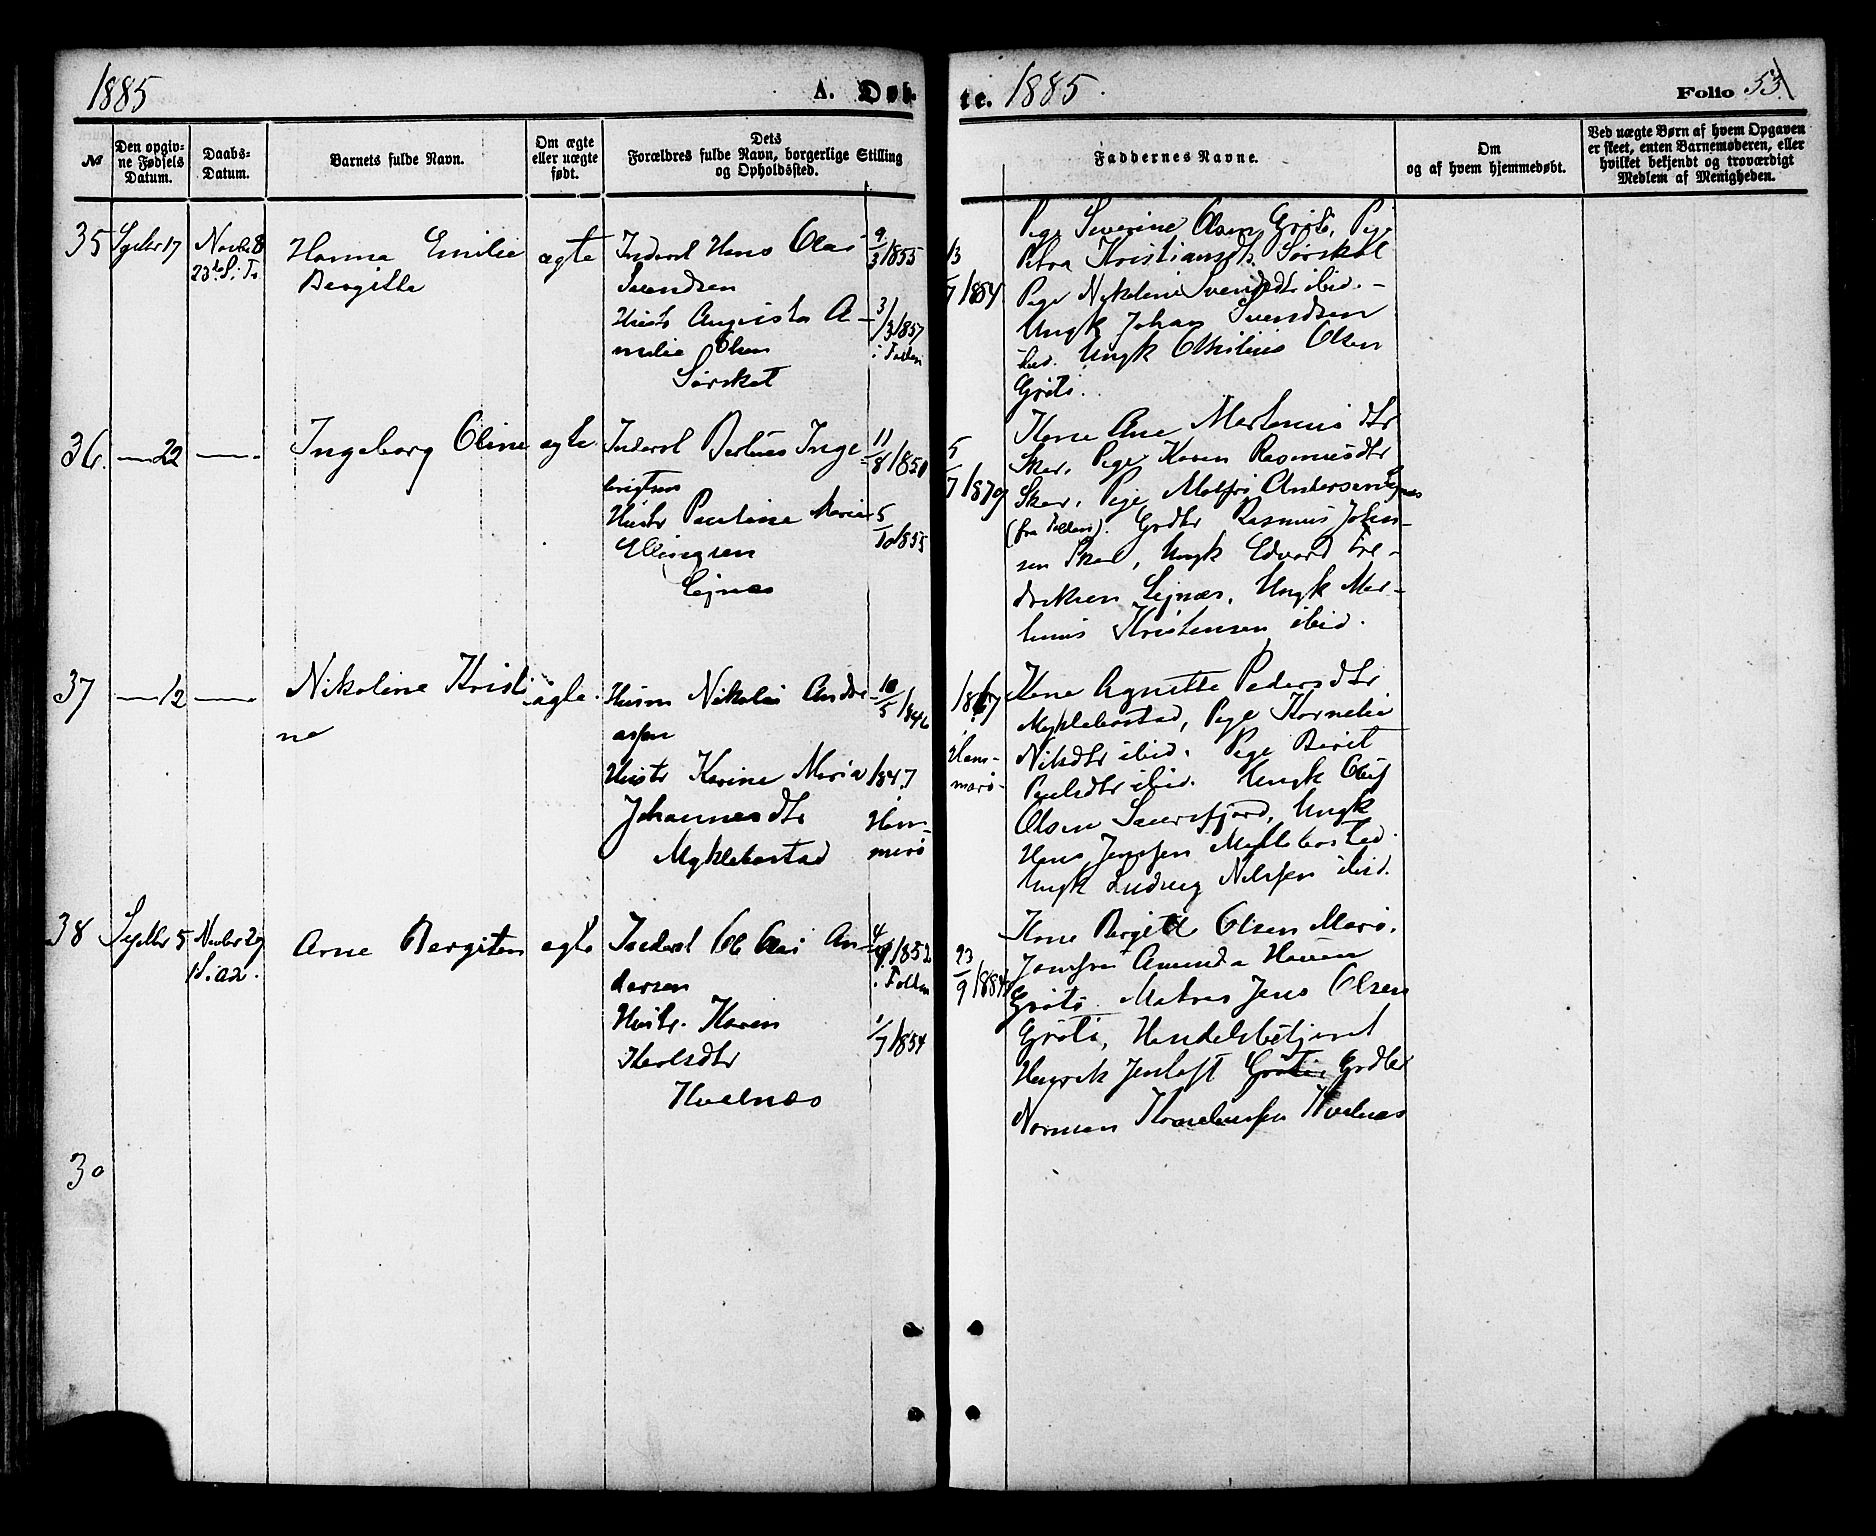 1885
A. Døb-
te. 1885.
Folio 53
No
Den opgiv-
ne Fødsels
Datum.
Daabs-
Datum.
Barnets fulde Navn.
Om ægte
eller uægte
født.
Dets
Forældres fulde Navn, borgerlige Stilling
og Opholdssted.
Faddernes Navne.
Om
og af hvem hjemmedøbt.
Ved uægte Børn af hvem Opgaven
er skeet, enten Barnemoderen, eller
hvilket bekjendt og troværdigt
Medlem af Menigheden.
35
Septbr 17
Novbr 8
23de S. Tr
Hanna Emilie
Bergitte
ægte
Inderst Hans Olai
Svendsen
Hustr Augusta A-
melie Olsen
Sørskot
9/3 1855
3/3 1857
i Folden
13/7 1884
Pige Severine Olsen Grøtø, Pige
Petra Kristiansdtr. Sørskot
Pige Nikoline Svendsdtr ibid. -
Ungk Johan Svendsen
ibid. Ungk Olsen
Grøtø.
36.
— 22
—
Ingeborg Oline
ægte
Inderst Berteus Inge-
brigtsen
Hustr Pauline Marie
Ellingsen
Lejnæs
11/8 1850
5/10 1855
5/7 1879
Kone Ane Martenus dtr
Skar, Pige Karen Rasmusdtr
Skar, Pige Andersen Lejnæs
(fra Folden). Grdbr Rasmus John-
sen Skar, Ungk Edvard Fre-
driksen Lejnæs, Ungk Mar-
tinus Kristensen ibid.
37
— 12
—
Nikoline Kristi
ne
ægte.
Husm Nikolai Andre-
assen
Hustr Karine Maria
Johannesdtr
Myklebostad
10/5 1846
1847
i
Ham-
marø
1867
i
Ham-
marø
Kone Agnette Pedersdtr
Myklebostad, Pige Kornelia
Nilsdtr ibid. Pige Berit
Paulsdtr ibid. Ungk Oluf
Olsen Saursfjord, Ungk
Hans Jenssen Myklebostad
Ungk Ludvig Nilssen ibid.
38
Septbr 5
Novbr 29
1 S. a2.
Arne Bergiton
ægte
Inderst Ole Olai An-
dersen
Hustr. Karen
Karlsdtr
Hvelnæs
1852
i Folden
1/7 1854
23/9 1884
Kone Bergitte Olsen Marø.
Jomfru Amunda Hansen
Grøtø. Matros Jens Olsen
Grøtø, Handelsbetjent
Henrik Jentoft Grøtø, Grdbr
Norman Kornelinssen Hvelnæs
30